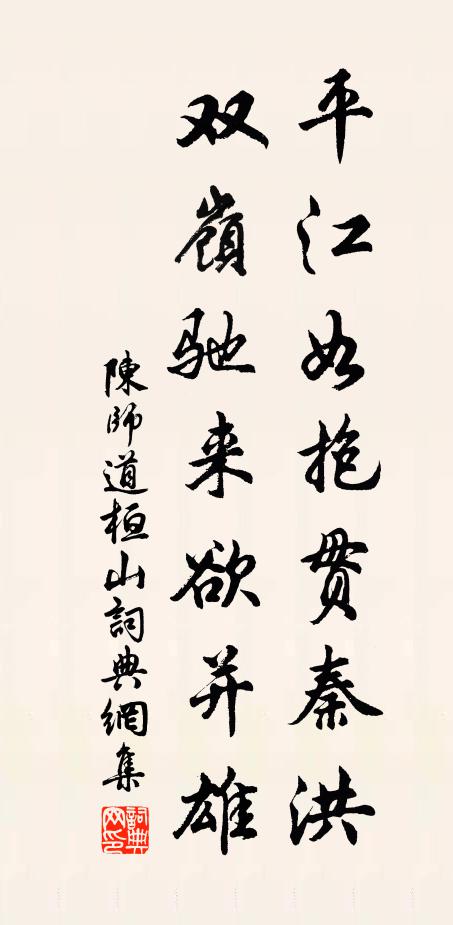 平江如抱貫秦洪
双嶺驰来欲并雄
陳師道桓山詞典網集
詞典网印